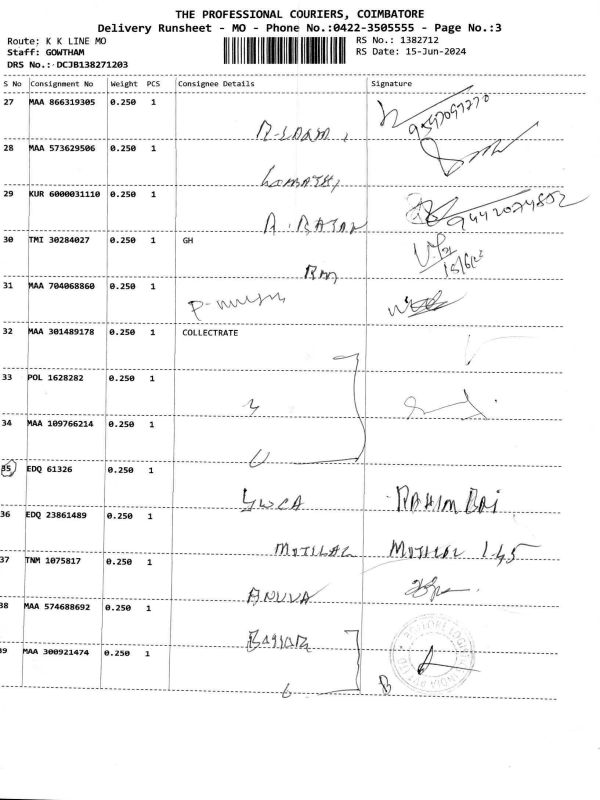 THE PROFESSIONAL COURIERS, COIMBATORE
Delivery Runsheet - MO - Phone No.:0422-3505555 - Page No.:3
Route: K K LINE MO
Staff: GOWTHAM
DRS No.: DCJB138271203
RS No.: 1382712
RS Date: 15-Jun-2024
S No Consignment No Weight PCS Consignee Details Signature
27 MAA 866319305 0.250 1
28 MAA 573629506 0.250 1
29 KUR 6000031110 0.250 1
9442074802
30 TMI 30284027 0.250 1 GH
31 MAA 704068860 0.250 1
32 MAA 301489178 0.250 1 COLLECTRATE
33 POL 1628282 0.250 1
34 MAA 109766214 0.250 1
35 EDQ 61326 0.250 1
YWCA RAHIM BAI
36 EDQ 23861489 0.250 1
MOTILAL MOTILAL 145
37 TNM 1075817 0.250 1
ANUVA
38 MAA 574688692 0.250 1
39 MAA 300921474 0.250 1
B